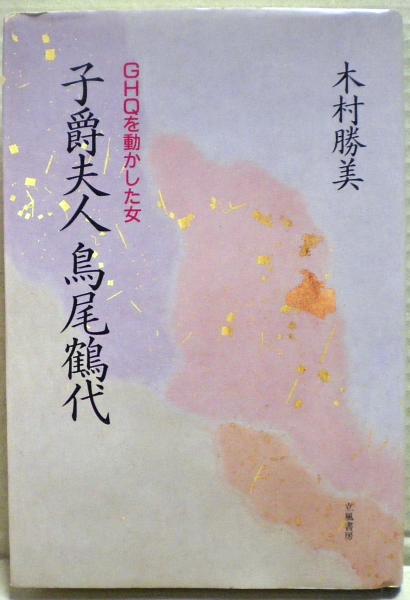 木村勝美
GHQを動かした女
子爵夫人 鳥尾鶴代
立風書房